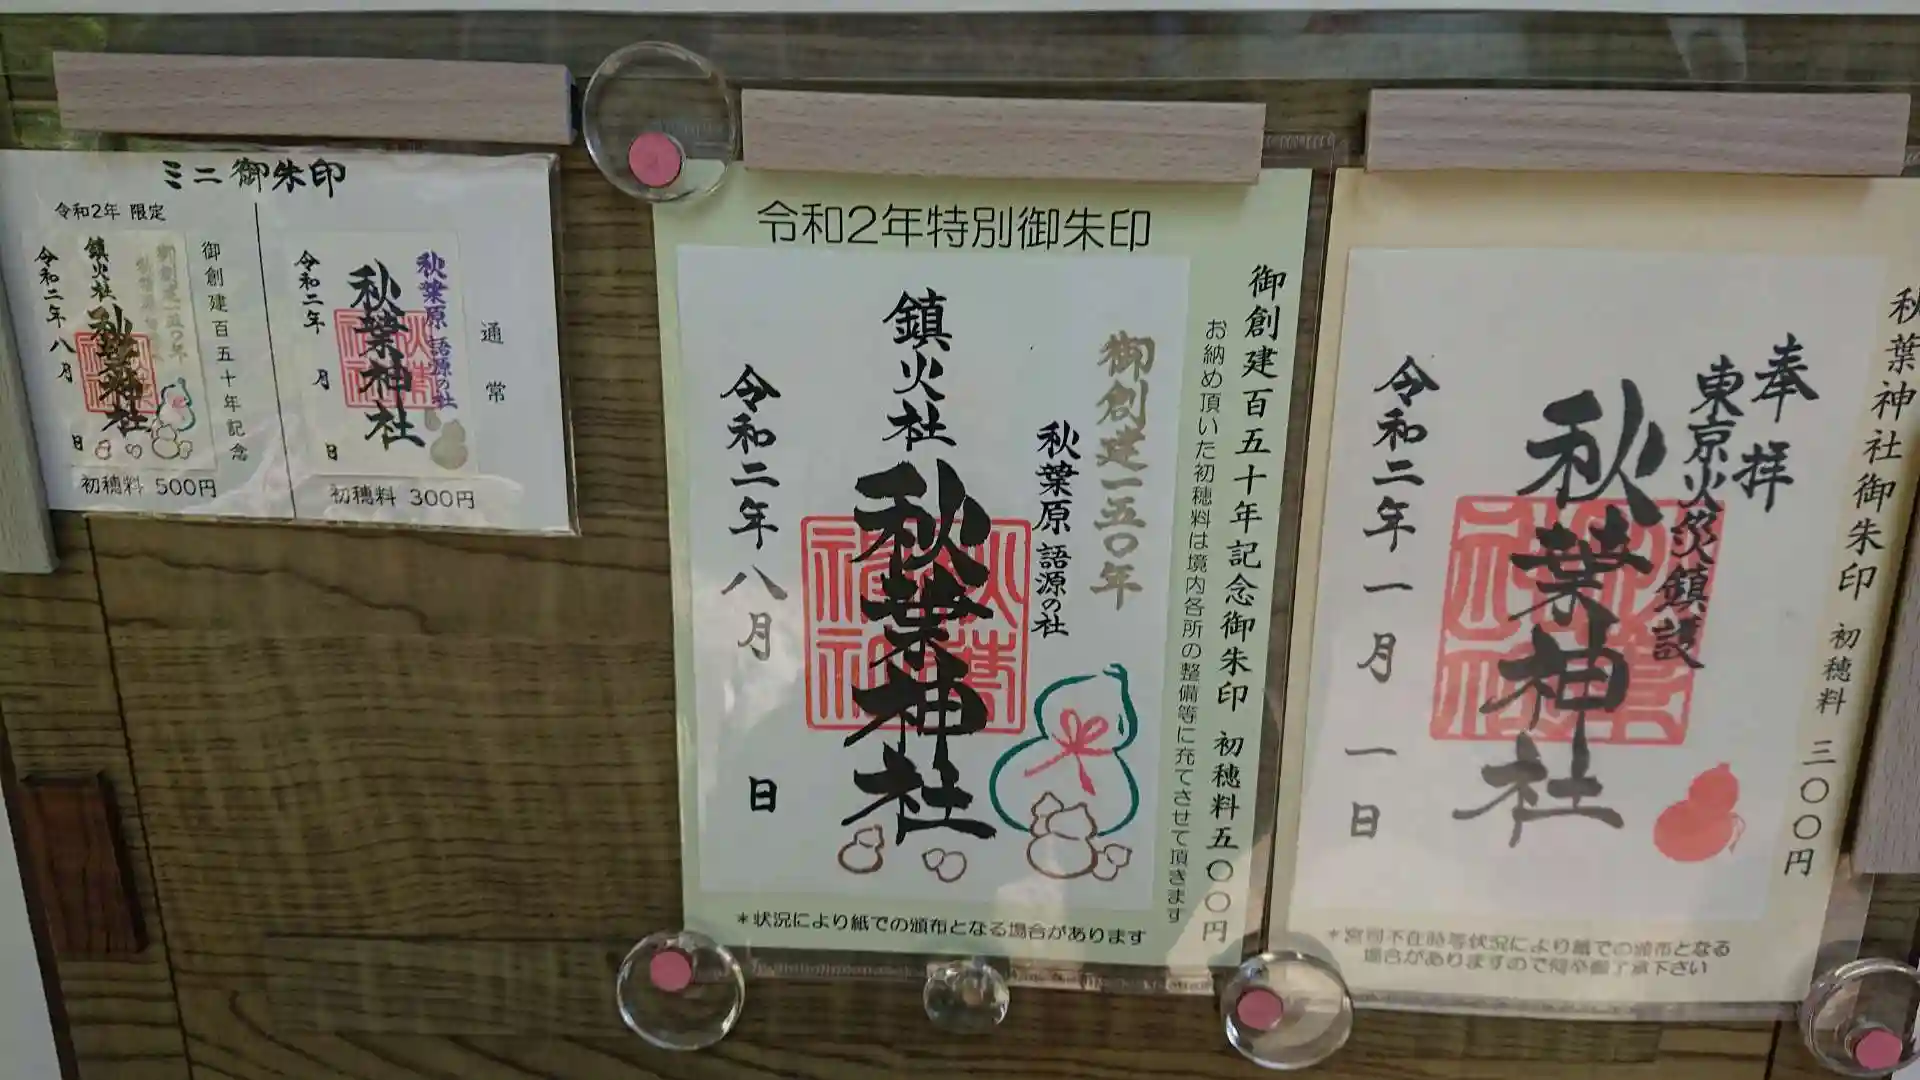 ミニ御朱印
令和2年 限定
御創建百五十年記念
御創建一五〇年
鎮火社
秋葉神社
令和二年八月 日
初穂料 500円
通常
秋葉原 語源の社
秋葉神社
令和二年 月 日
初穂料 300円
令和2年特別御朱印
御創建百五十年記念御朱印 初穂料五〇〇円
お納め頂いた初穂料は境内各所の整備等に充てさせて頂きます
御創建一五〇年
秋葉原 語源の社
鎮火社
秋葉神社
令和二年八月 日
*状況により紙での頒布となる場合があります
秋葉神社御朱印 初穂料 三〇〇円
奉拝
東京火災鎮護
秋葉神社
令和二年一月一日
*宮司不在時等状況により紙での頒布となる
場合がありますので何卒御了承下さい